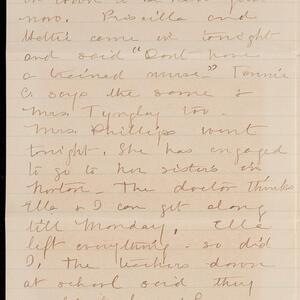 now. Priscilla and
Hettie came in tonight
and said "Dont have
a trained nurse." Fannie
C. says the same &
Mrs. Tyngley too.
Mrs. Phillips went
tonight. She has engaged
to go to her sisters in
Norton - The doctor thinks
Ella & I can get along
till Monday. Ella
left everything - so did
I, the teachers down
at school said they